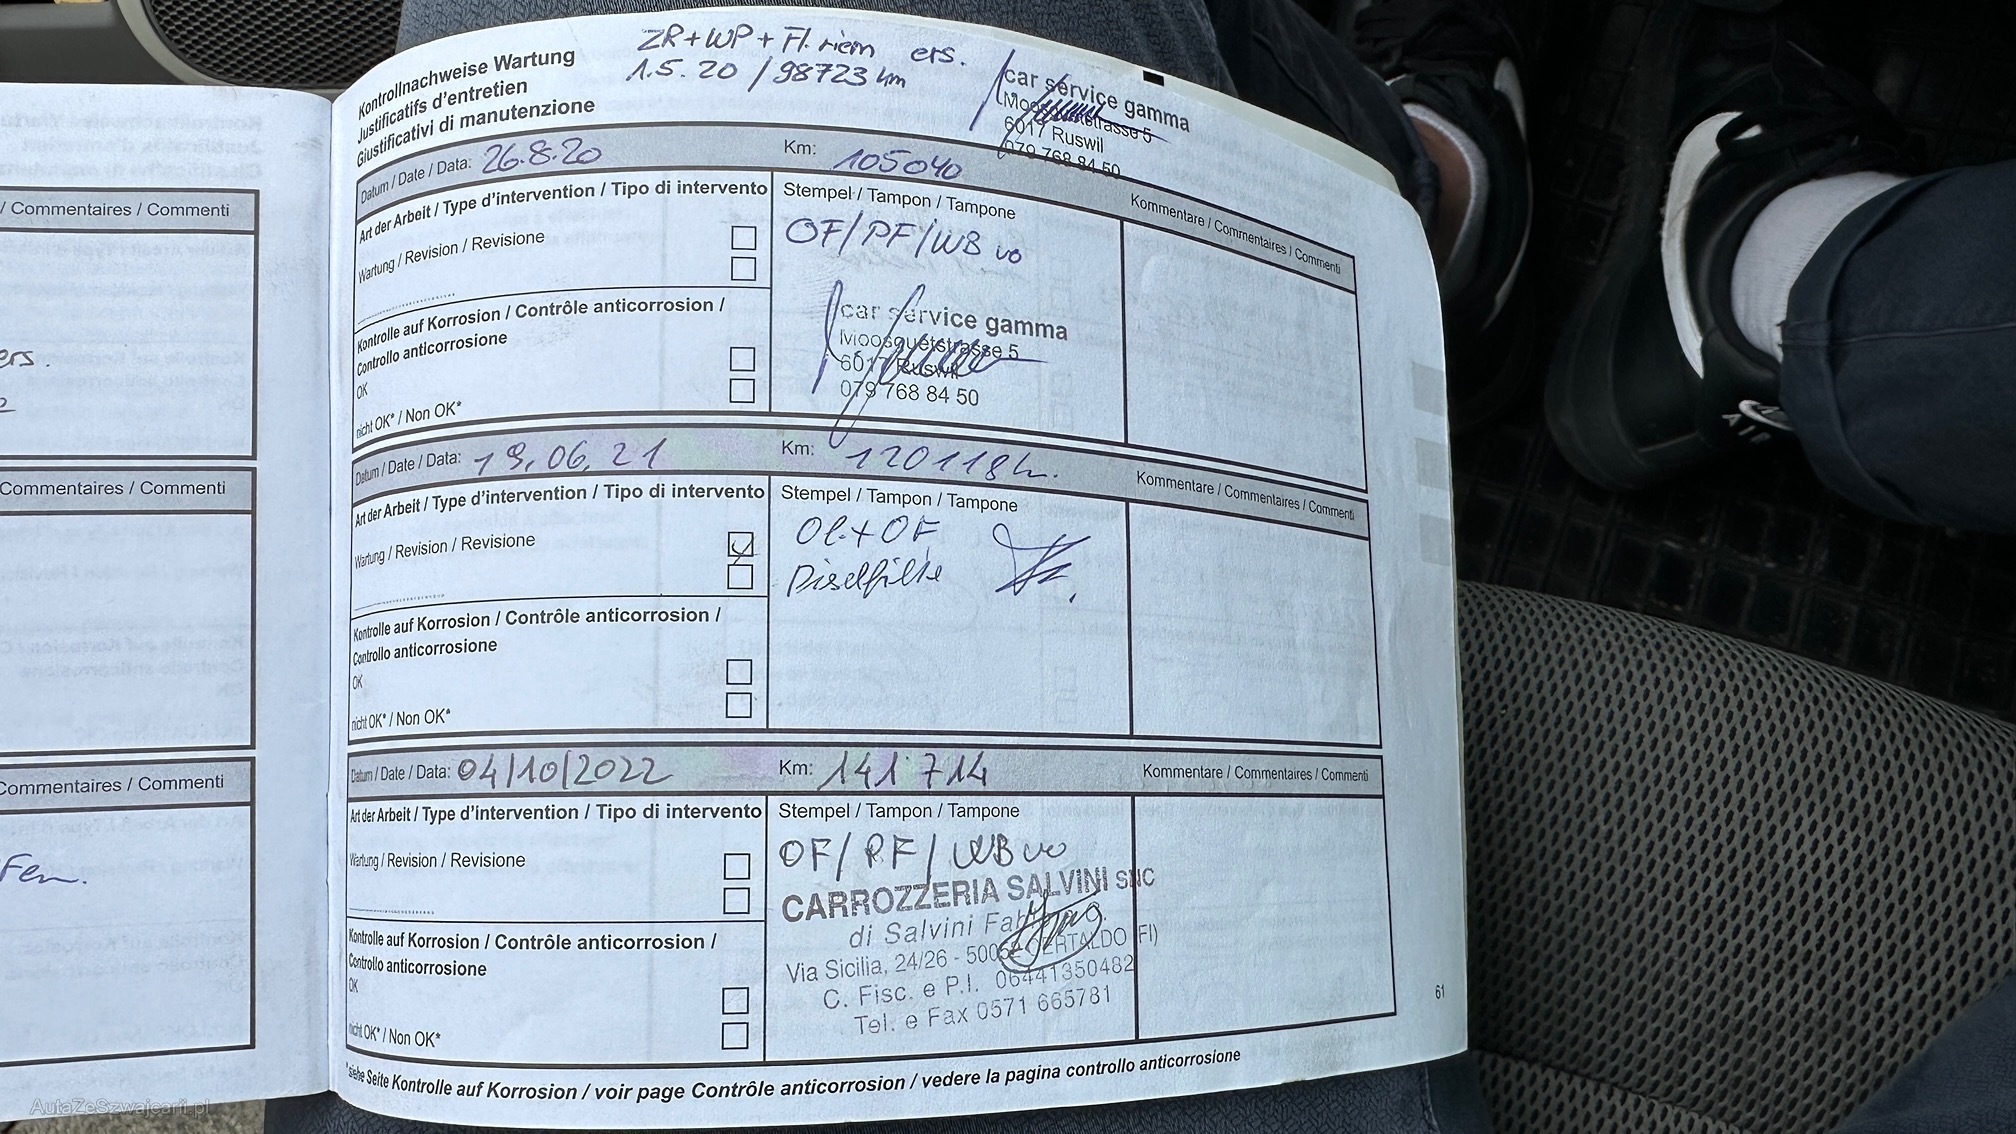 ers.
Fen.
/ Commentaires / Commenti
Commentaires / Commenti
Commentaires / Commenti
Kontrollnachweise Wartung
Justificatifs d'entretien
Giustificativi di manutenzione
ZR+WP+Fl.riem ers.
1.5.20 / 98723 km
car service gamma
6017 Ruswil
079 768 84 50
Datum / Date / Data: 26.8.20 Km: 105040
Kommentare / Commentaires / Commenti
Art der Arbeit / Type d'intervention / Tipo di intervento
Wartung / Revision / Revisione
Kontrolle auf Korrosion / Contrôle anticorrosion /
Controllo anticorrosione
OK
nicht OK* / Non OK*
Stempel / Tampon / Tampone
OF/PF/WB vo
car service gamma
Moosguetstrasse 5
6017 Ruswil
079 768 84 50
Datum / Date / Data: 19.06.21 Km: 120118
Kommentare / Commentaires / Commenti
Art der Arbeit / Type d'intervention / Tipo di intervento
Wartung / Revision / Revisione
Kontrolle auf Korrosion / Contrôle anticorrosion /
Controllo anticorrosione
OK
nicht OK* / Non OK*
Stempel / Tampon / Tampone
Öl + OF
Datum / Date / Data: 04/10/2022 Km: 141714
Kommentare / Commentaires / Commenti
Art der Arbeit / Type d'intervention / Tipo di intervento
Wartung / Revision / Revisione
Kontrolle auf Korrosion / Contrôle anticorrosion /
Controllo anticorrosione
OK
nicht OK* / Non OK*
Stempel / Tampon / Tampone
OF/PF/WB vo
CARROZZERIA SALVINI SNC
di Salvini
Via Sicilia, 24/26 - 50052 CERTALDO (FI)
C. Fisc. e P.I. 06441350482
Tel. e Fax 0571 665781
*siehe Seite Kontrolle auf Korrosion / voir page Contrôle anticorrosion / vedere la pagina controllo anticorrosione
61
AIR
AutaZeSzwajcarii.pl